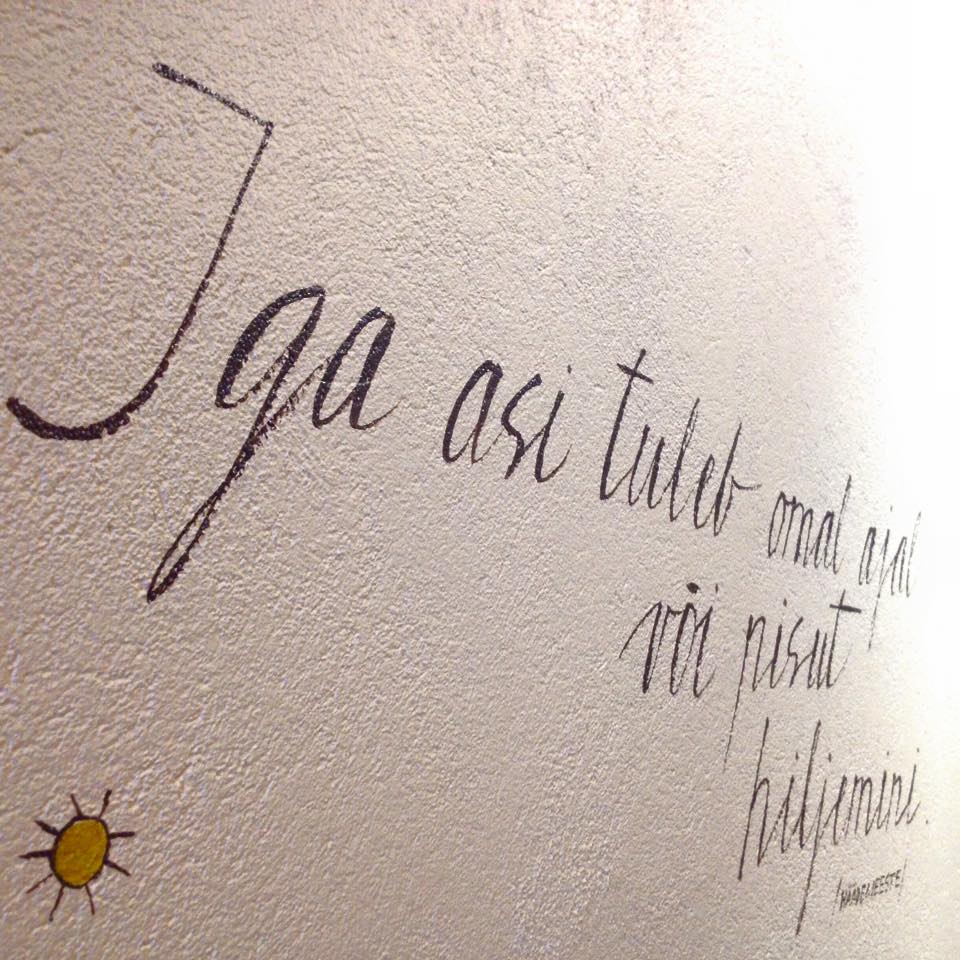 Iga asi tuleb omal ajal
või pisut
hiljemini.
/HÄÄDEMEESTE/